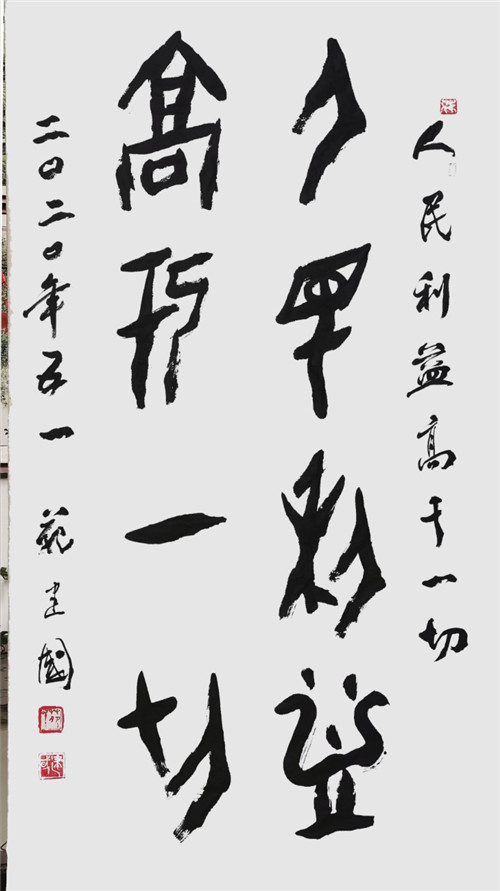 人民利益高于一切
人民利益
高于一切
二〇二〇年五一 建國